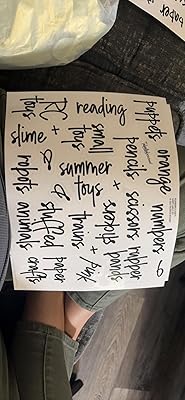 paper
reading
puppets
orange
numbers
pencils
scissors
rubber
bands
small
toys
+
stickers
RC
toys
summer
toys
trains
+
pink
slime
+
stuffed
paper
crafts
robots
animals